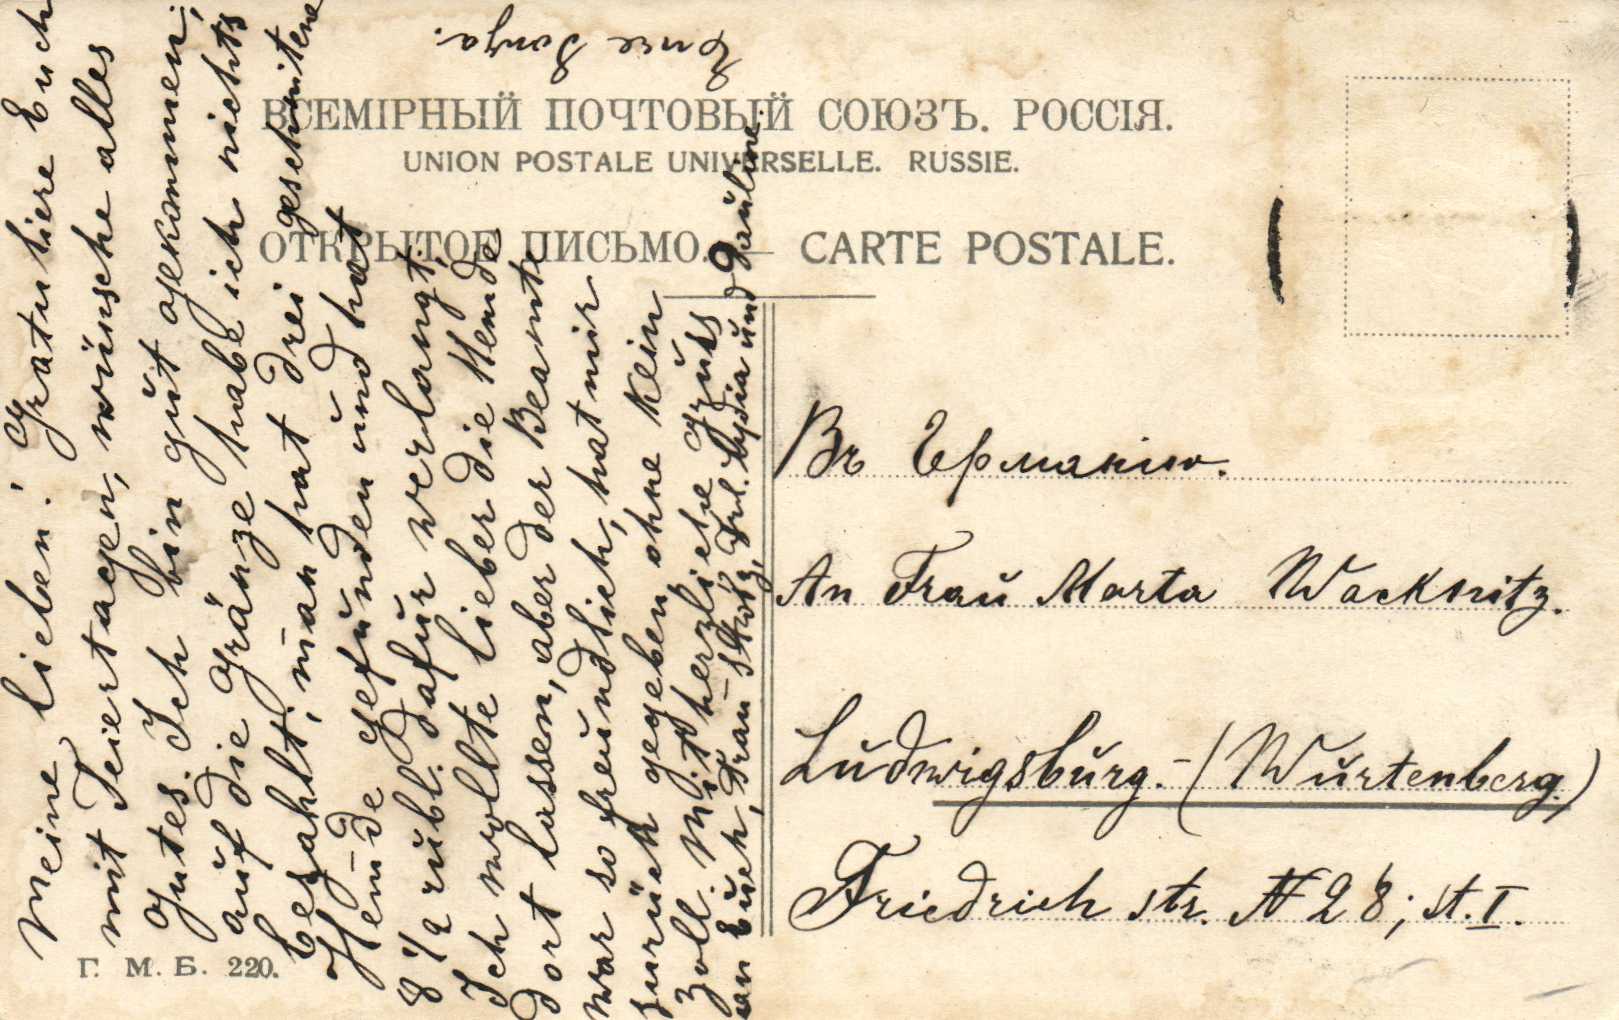 ВСЕМІРНЫЙ ПОЧТОВЫЙ СОЮЗЪ. РОССІЯ.
UNION POSTALE UNIVERSELLE. RUSSIE.
ОТКРЫТОЕ ПИСЬМО. — CARTE POSTALE.
Meine lieben! Gratuliere Euch
mit Feiertagen, wünsche alles
gutes. Ich bin gut gekommen,
auf die Gränze habe ich nichts
bezahlt, man hat drei geschnitene
Hemde gefunden und hat
8 1/2 rubl. dafür verlangt.
Ich wollte lieber die Hemde
dort lassen, aber der Beamte
war so freundlich, hat mir
zurück gegeben ohne klein
Zoll. Mit herzliche Grüss
an Euch, Frau Skotz, Frl. Lydia und Pauline.
Eure Sonja.
Въ Германію.
An Frau Marta Wacknitz.
Ludwigsburg.-(Würtenberg.)
Friedrich str. N 28; st. I.
Г. М. Б. 220.